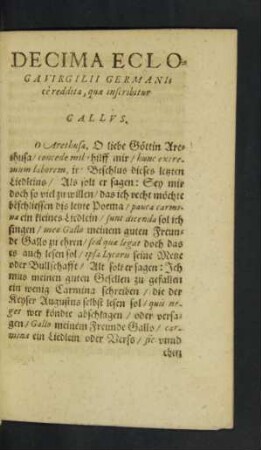 DECIMA ECLO-
GA VIRGILII GERMANI-
cè reddita, quæ inscribitur
GALLVS.
O Arethusa, O liebe Göttin Are-
thusa / concede mihi hilff mir / hunc extre-
mum laborem, zū Beschlus dieses letzten
Liedleins / Als solt er sagen: Sey mir
doch so viel zu willen / das ich recht möchte
beschliessen dis letzte Poema / pauca carmi-
na ein kleines Liedlein / sunt dicenda sol ich
singen / meo Gallo meinem guten Freun-
de Gallo zu ehren / sed quæ legat doch das
es auch lesen sol / ipsa Lycoris seine Metze
oder Bullschafft / Als solt er sagen: Ich
mus meinen guten Gesellen zu gefallen
ein wenig Carmina schreiben / die der
Keyser Augustus selbst lesen sol / quis ne-
get wer köndte abschlagen / oder versa-
gen / Gallo meinem Freunde Gallo / car-
mina ein Liedlein oder Verso / sic vnnd